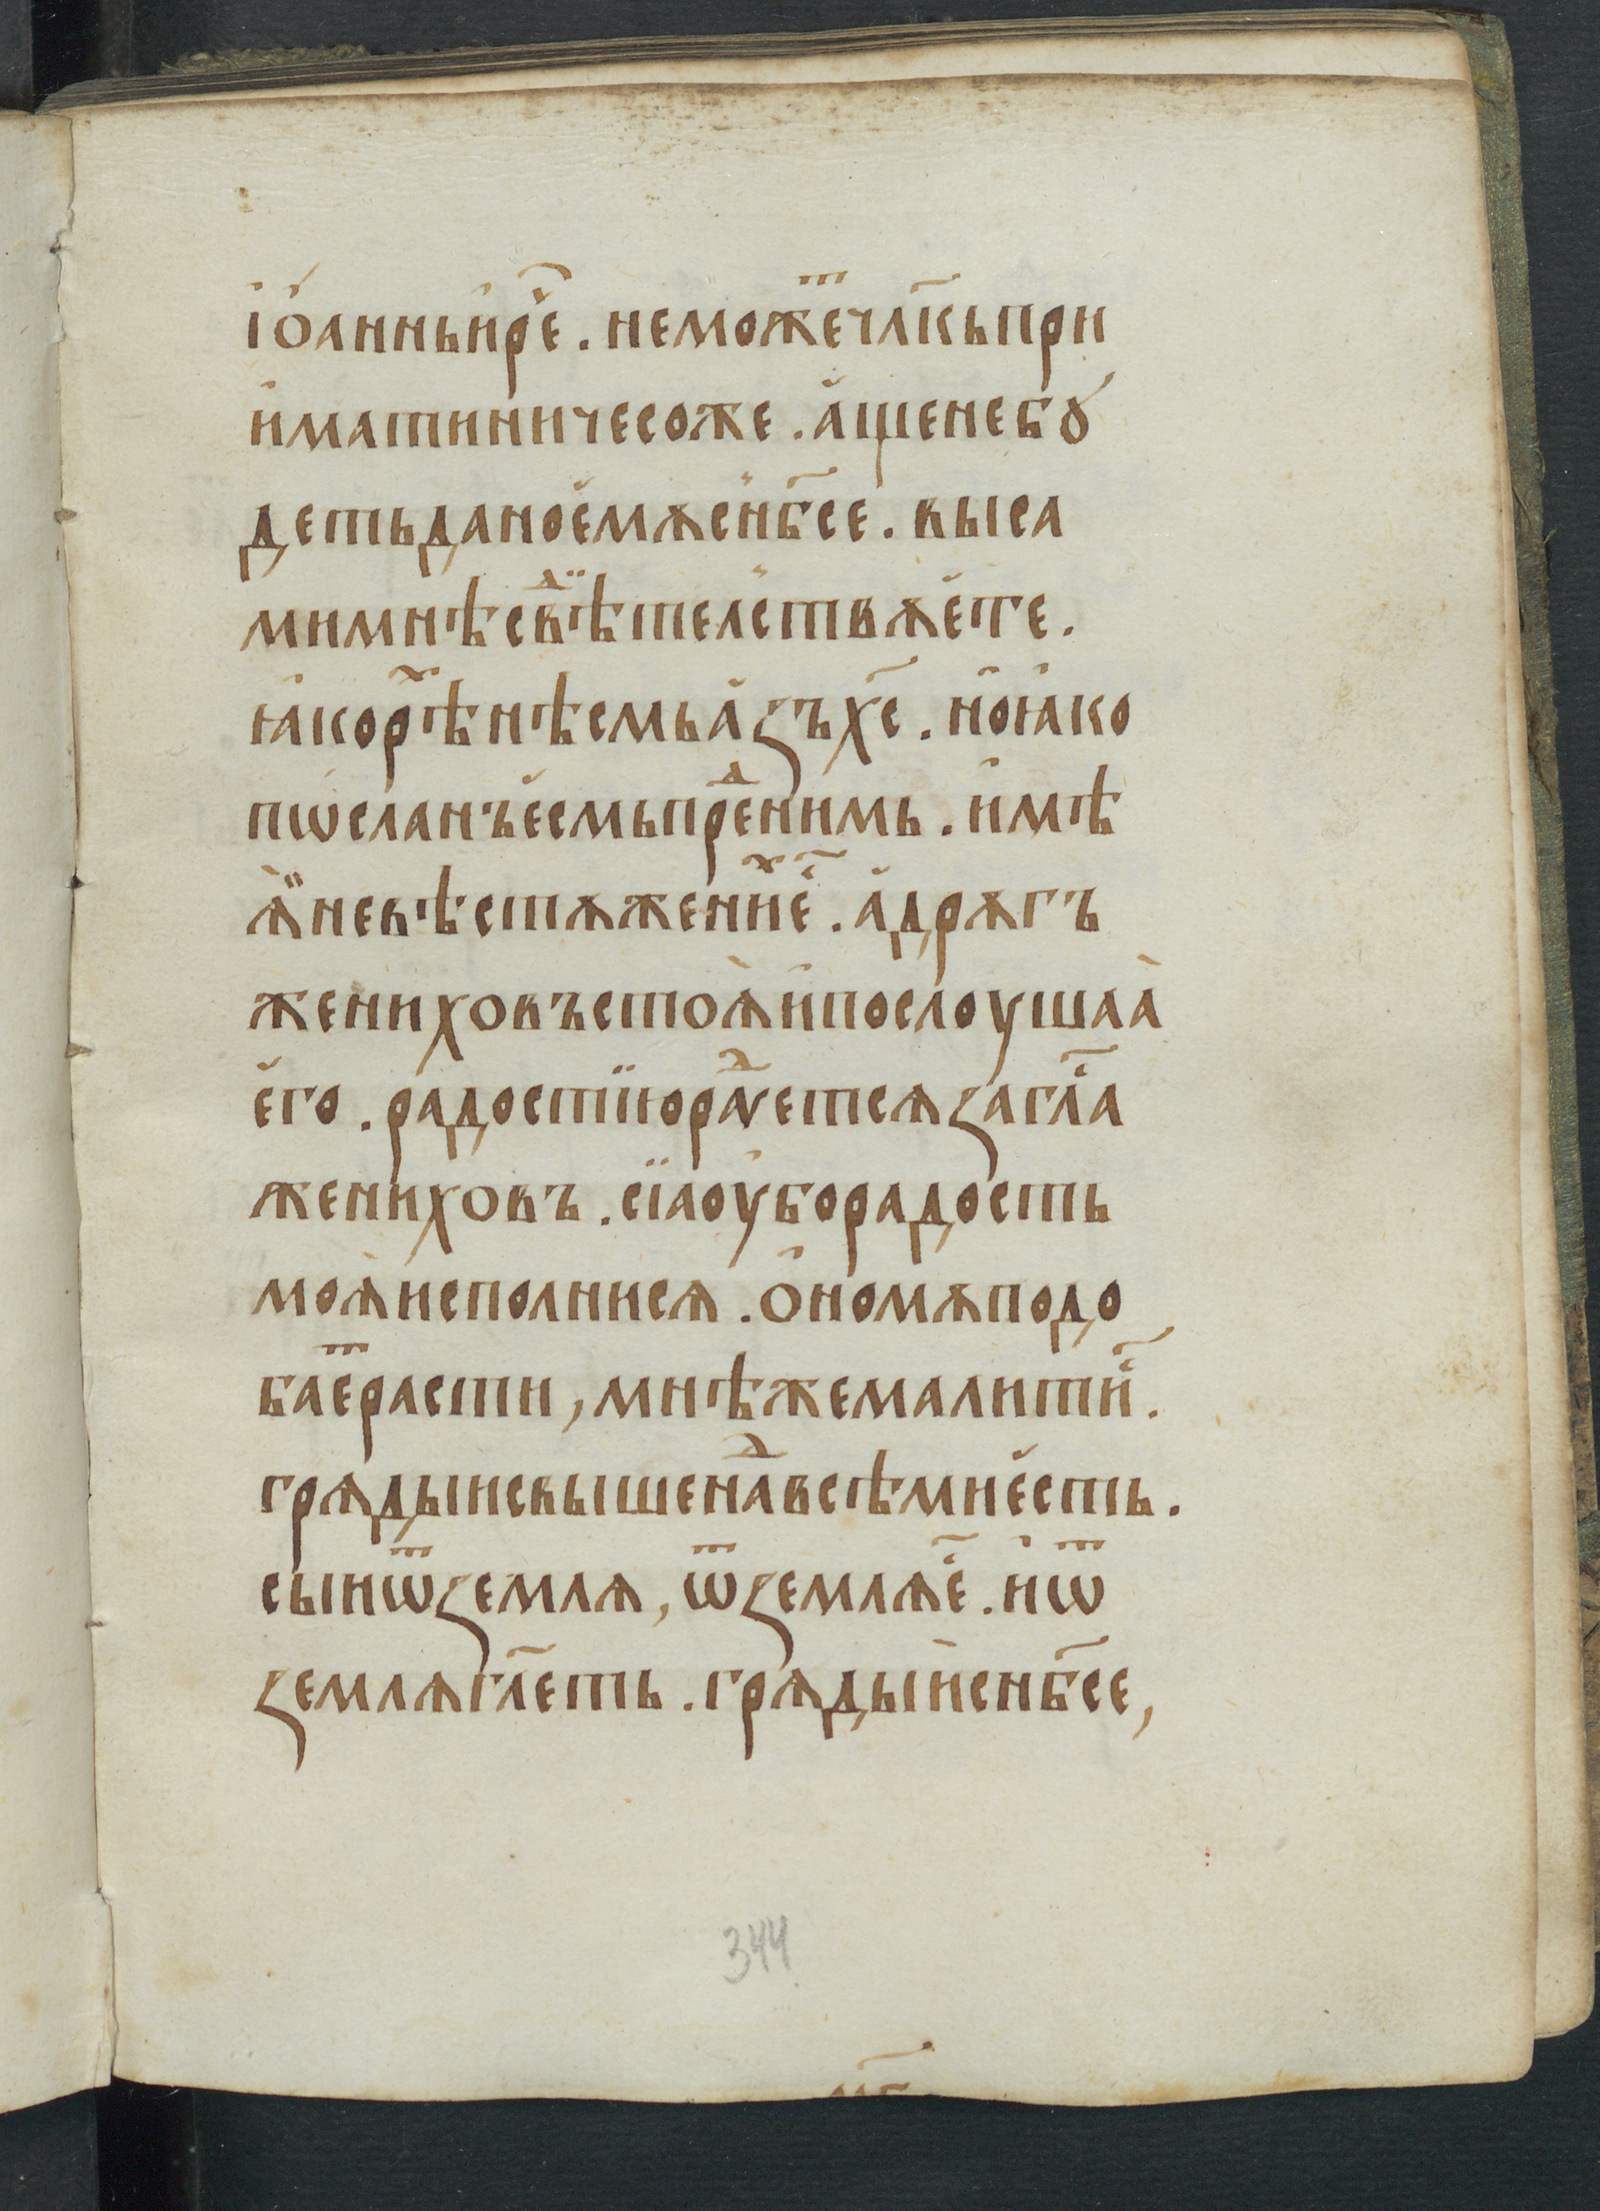 і҆ѻ҆аннъи҆рⷱ҇е. неможеⷮчл҃къпри
и҆матиничесоже. а҆щенебꙋ́
детьданое҆мѫсн҃бсе. высa
мимнѣсвⷣѣтелствѫе҆те.
ꙗ҆корⷯѣнѣсмьа҆ꙁъх҃с. но҆ꙗ҆ко
пѡсланъе҆смьпреⷣнимь. и҆мѣ
ѧ҆иневѣстѫженⷯие҆҃. а҆дрѫгъ
жениховъстоѧ҆и҆послоушаа҆
е҆го. радостїюраⷣуетсѧꙁагл҃а
жениховъ. сїаоу҆борадость
моѧ҆исполнисѧ. ѻ҆номѫподо
баеⷮрасти, мнѣжемалити҃и.
грѧдыисвышенаⷣвсѣмие҆сть.
сыиѿꙁемлѧ, ѿꙁемлѧе҆҃. и҆ѿ
ꙁемлѧгл҃еть. грѧдыи҆сн҃бсе,
344